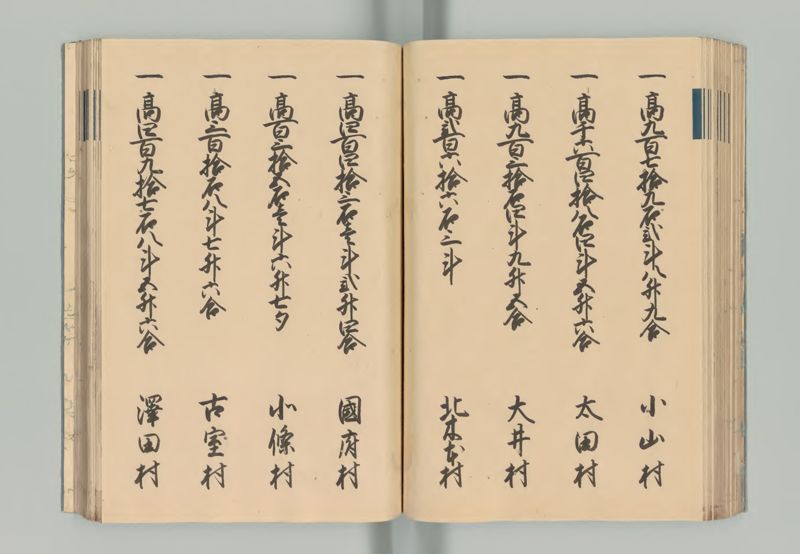 一高九百七拾九石弐斗八升九合 小山村
一高千六百四拾八石四斗五升六合 太田村
一高九百三拾石四斗九升五合 大井村
一高弐百六拾六石三斗 北木本村
一高四百四拾三石壱斗弐升四合 國府村
一高百三拾五石壱斗六升七夕 小條村
一高三百拾石八斗七升六合 古室村
一高四百九拾七石八斗五升六合 澤田村